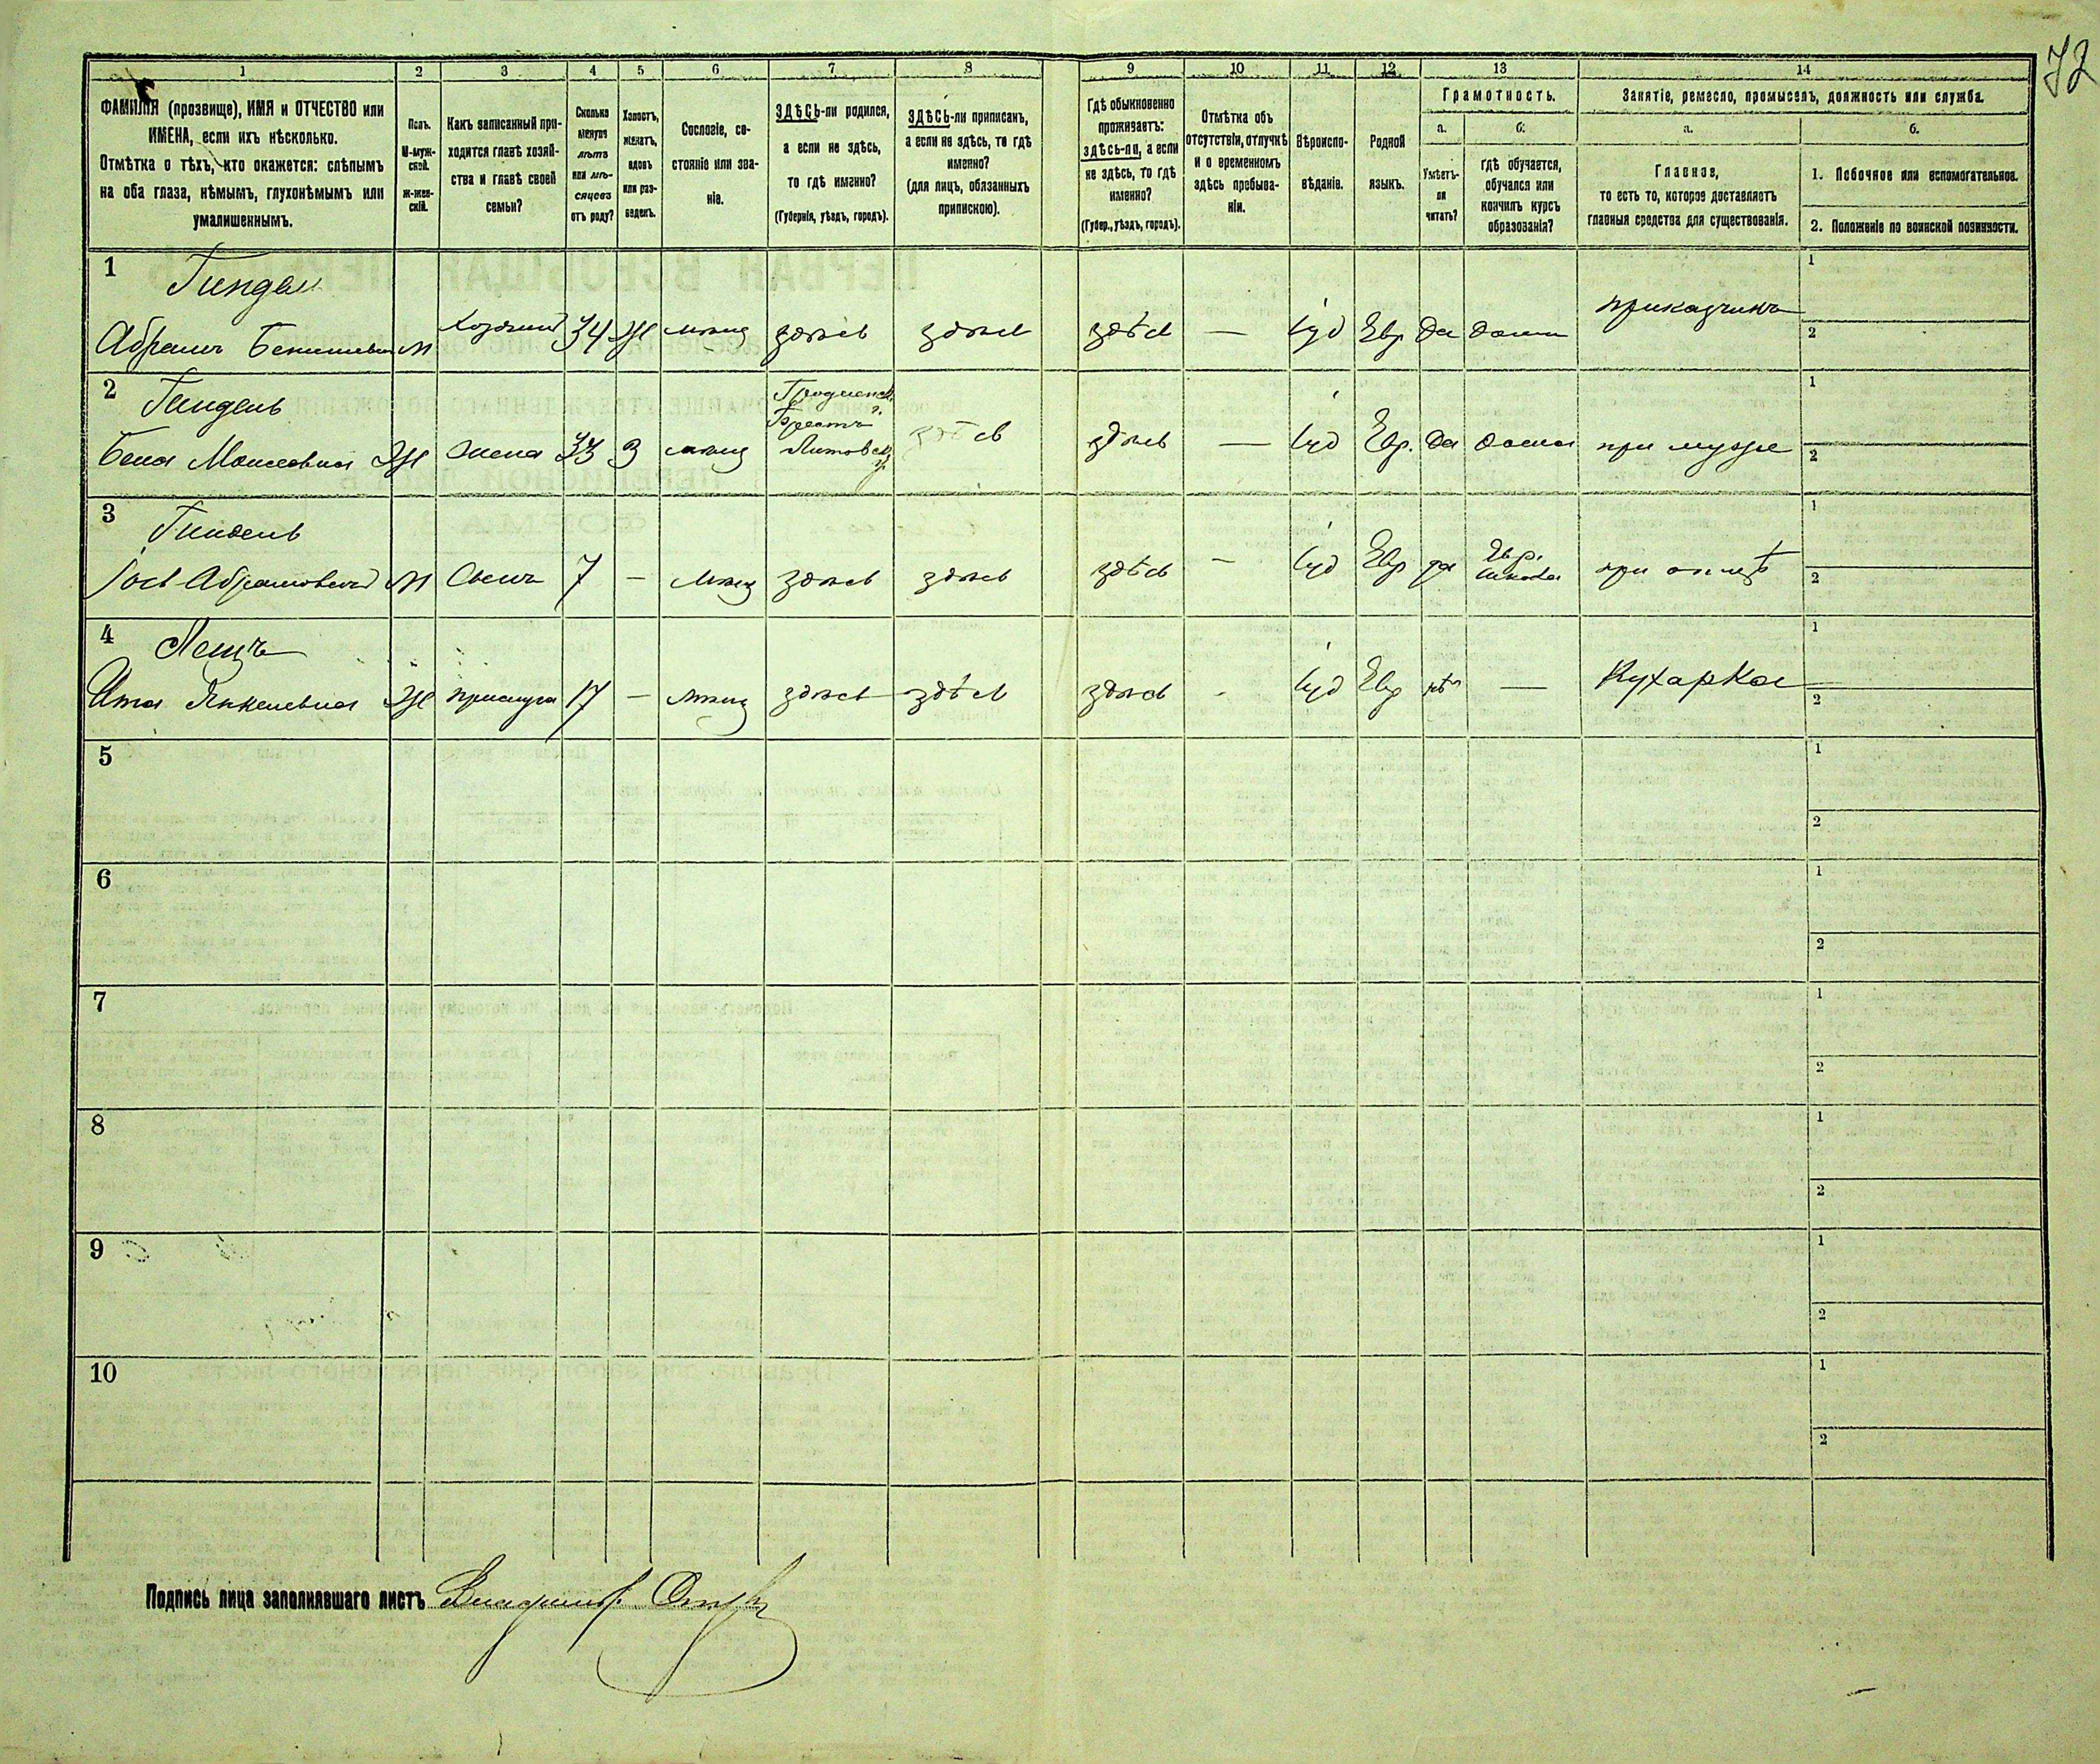 72
1 2 3 4 5 6 7 8 9 10 11 12 13 14
ФАМИЛІЯ (прозвище), ИМЯ и ОТЧЕСТВО или
ИМЕНА, если ихъ нѣсколько.
Отмѣтка о тѣхъ, кто окажется: слѣпымъ
на оба глаза, нѣмымъ, глухонѣмымъ или
умалишеннымъ.
Полъ.
М-муж-
ской.
Ж-жен-
скій.
Какъ записанный при-
ходится главѣ хозяй-
ства и главѣ своей
семьи?
Сколько
минуло
лѣтъ
или мѣ-
сяцевъ
отъ роду?
Холостъ,
женатъ,
вдовъ
или раз-
веденъ.
Сословіе, со-
стояніе или зва-
ніе.
ЗДѢСЬ-ли родился,
а если не здѣсь,
то гдѣ именно?
(Губернія, уѣздъ, городъ).
ЗДѢСЬ-ли приписанъ,
а если не здѣсь, то гдѣ
именно?
(для лицъ, обязанныхъ
припискою).
Гдѣ обыкновенно
проживаетъ:
здѣсь-ли, а если
не здѣсь, то гдѣ
именно?
(Губер., уѣздъ, городъ).
Отмѣтка объ
отсутствіи, отлучкѣ
и о временномъ
здѣсь пребыва-
ніи.
Вѣроиспо-
вѣданіе.
Родной
языкъ.
Грамотность.
а.
Умѣетъ-
ли
читать?
б.
гдѣ обучается,
обучался или
кончилъ курсъ
образованія?
Занятіе, ремесло, промыселъ, должность или служба.
а.
Главное,
то есть то, которое доставляетъ
главныя средства для существованія.
б.
1. Побочное или вспомогательное.
2. Положеніе по воинской повинности.
1 Гиндель 1
Абрамъ м Хозяинъ 34 Ж мѣщ здѣсь здѣсь здѣсь — іуд Евр да дома прикащикъ 2
2 Гиндель Гродненск. 1
г.
Брестъ
Бена Моисеевна Ж жена 33 З мѣщ Литовск здѣсь здѣсь — іуд Евр. да дома при мужѣ 2
3 Гиндель Евр. 1
Іось Абрамовичъ М Сынъ 7 — мѣщ здѣсь здѣсь здѣсь — іуд Евр да школа при отцѣ 2
4 Лещъ 1
Ита Янкелевна Ж прислуга 17 — мѣщ здѣсь здѣсь здѣсь - іуд Евр нѣт — Кухарка 2
5 1
2
6 1
2
7 1
2
8 1
2
9 1
2
10 1
2
Подпись лица заполнявшаго листъ